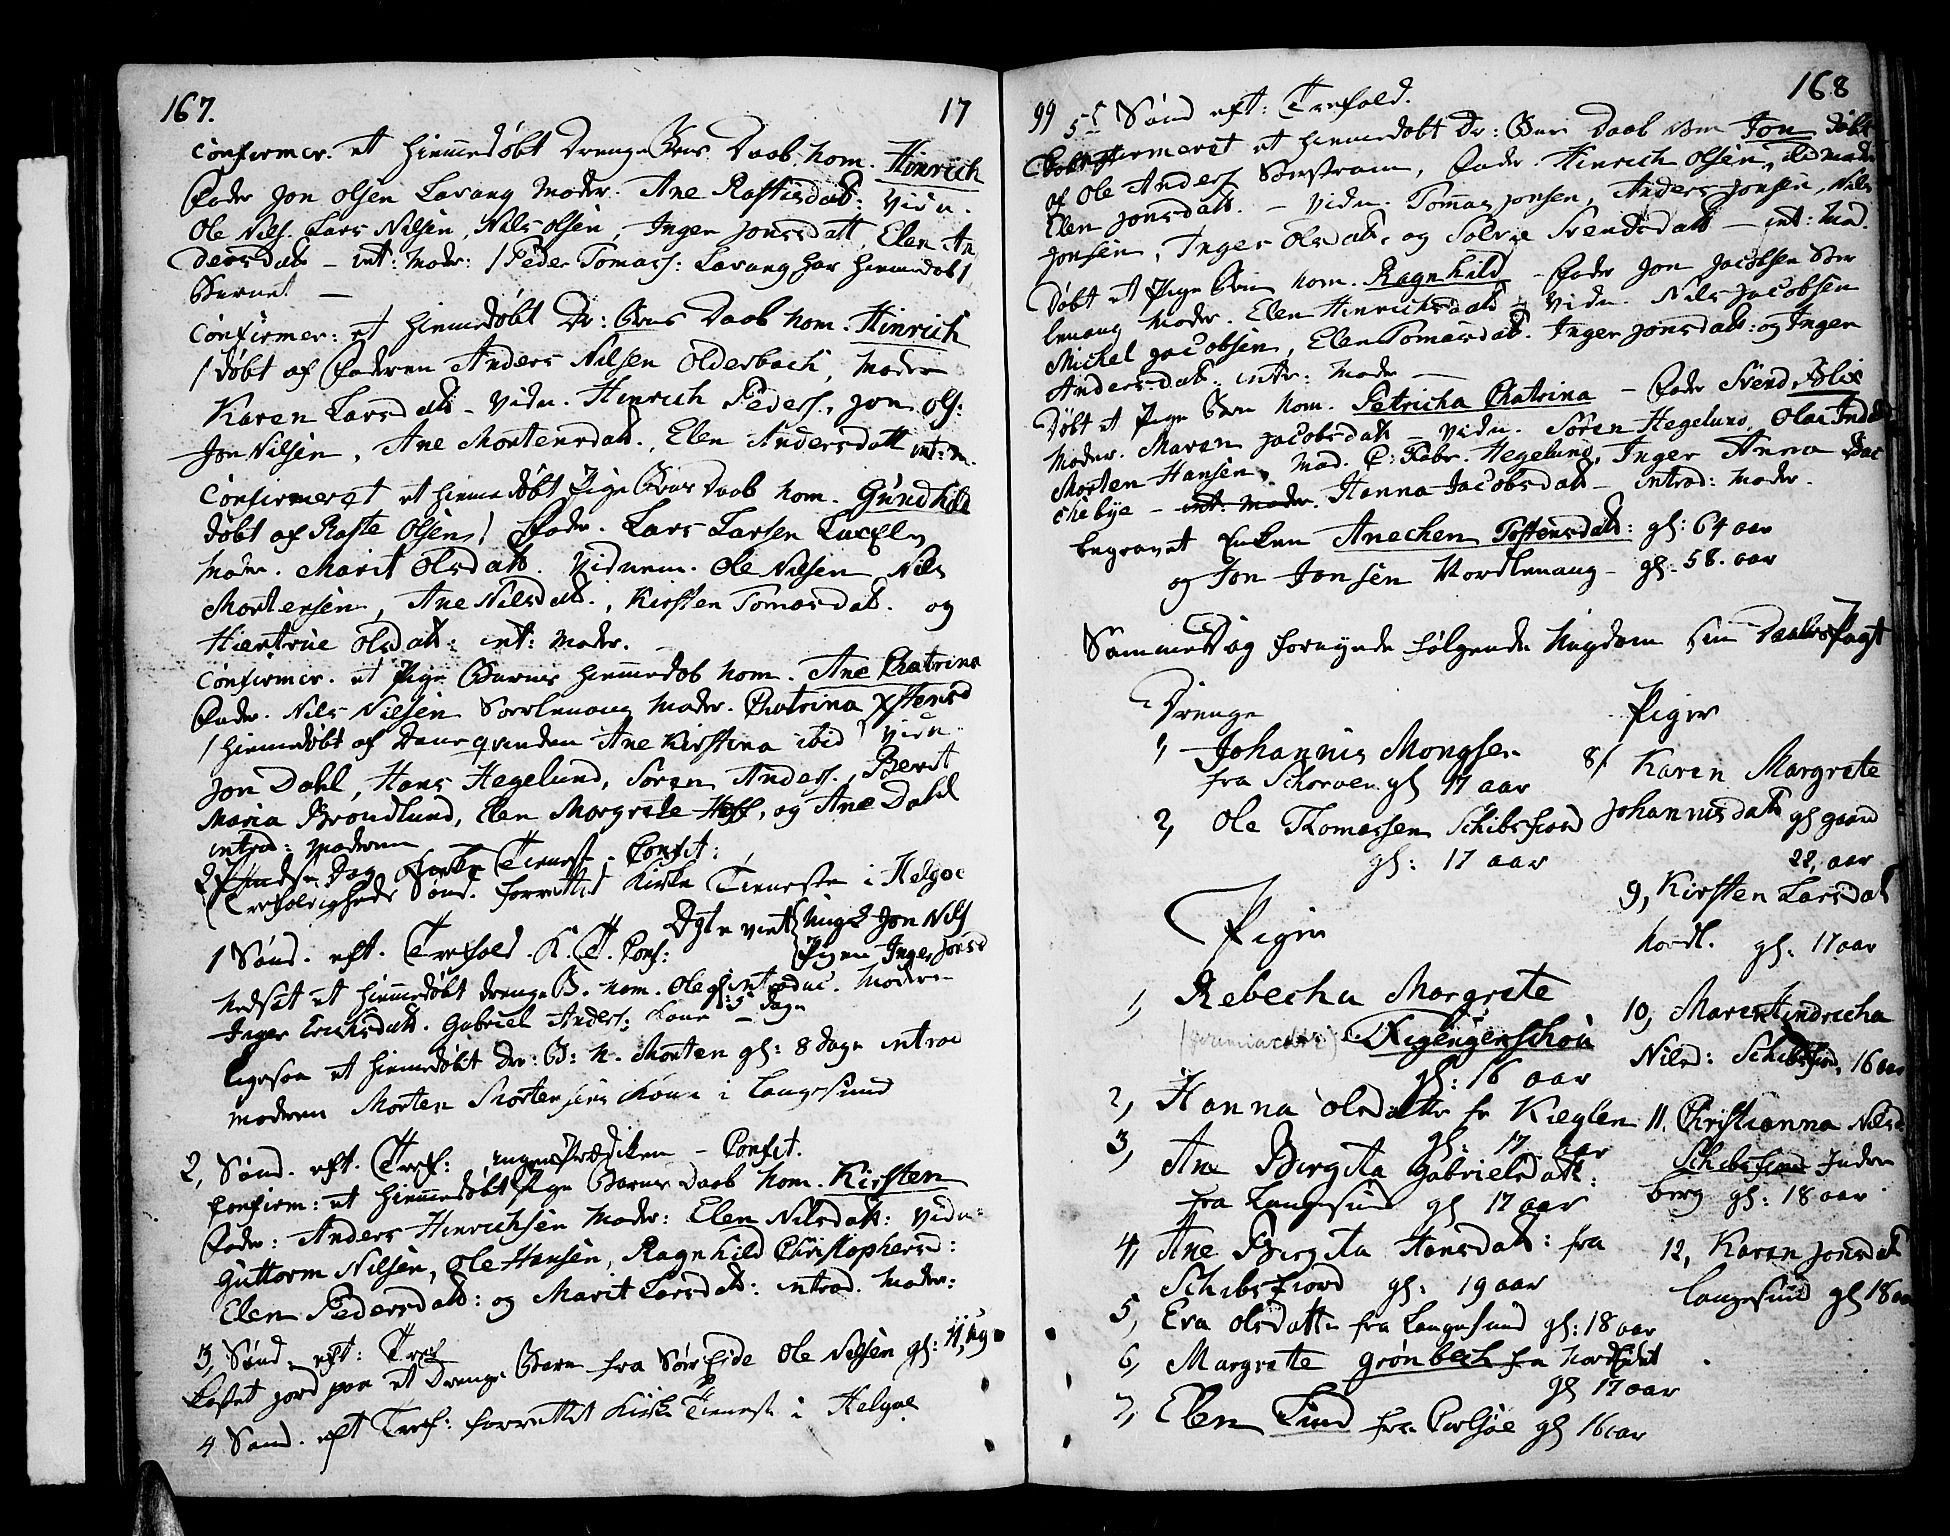 167. 17
Confirmer. et hiemedøbt Drenge Daab, nom. Hinrich
Fader Jon Olsen Lavang Moder. Ane Rastisdatt: vidn.
Ole Nils. Lars Nilsen, Nils Olsen, Inger Jonsdatt, Elen An
dersdatt - int: Moder: / Peder Tomass: Lavang har hiemedøbt
Barnet -
Confirmer: et hiemedøbt Dr: Daab nom. Hinrich
/ døbt af Faderen Anders Nilsen Olderbach, Moder
Karen Larsdatt - vidn. Hinrich Peders., Jon Ols:
Jon Nilsen, Ane Mortensdatt, Elen Andersdatt int: m.
Confirmeret et hiemedøbt Pige Daab nom. Gundhild
døbt af Raste Olsen / Fader. Lars Larsen
Moder. Marit Olsdatt. Vidnerne. Ole Nilsen Nils
Mortensen, Ane Nilsdatt., Kirsten Tomasdatt. og
Hiertrue Olsdatt: int: Moder.
Confirmer. et Pige Barnes hiemedøb nom. Ane Catrina
Fader. Nils Nilsen Sørlenang Moder. Catrina
/ hiemedøbt af Ane Kirstina ibid / vidn.
Jon Dahl, Hans Hegelund, Søren Anders., Berit
Maria Brondlund, Elen Margrete Hoff, og Ane Dahl
introd: Moderen
2 Pindse Dag Tienest - Confit:
Trefoldigheds Sønd. forrettet Kirke Tieneste i Helgøe
1 Sønd. eft. Trefold. K. T. Conf: Ungk Jon Nils
Pigen Inger Jonsd
Nedsat et hiemedøbt Drenge B. nom. Ole introduc. Moderen
Inger Erichsdatt. Gabriel Anders: Kone gl: 5 Dage
ligesaa et hiemedøbt Dr: B: N. Morten gl: 8 Dage introd
Moderen Morten Mortensens Kone i Langesund
2, Sønd. eft. Tref: ingen Prædiken - Confit.
Confirm: et hiemmedøbt Pige Barnes Daab nom. Kirsten
Fader: Anders Hinrichsen Moder: Elen Nilsdatt: vidn:
Guttorm Nilsen, Ole Hansen, Ragnhild Christophersd:
Elen Pedersdatt: og Marit Larsdatt: introd. Moder:
3, Sønd. eft: Tref
Kastet jord paa et Drenge Barn fra Sørside Ole Nilsen gl: 11 Ug
4 Sønd. eft Tref: forrettet Kirke Tieneste i Helgøe
99 168
5t Sønd eft: Trefold.
Confirmeret et hiemedøbt Dr: Daab nom Jon døbt
af Ole Anders, Fader. Hinrich Olsen, Moder
Elen Jonsdatt. - vidn. Tomas Jonsen, Anders Jonsen, Nils
Jonsen, Inger Olsdatt, og Solvie Svendsdatt - int: Mod.
Døbt et Pige nom. Ragnhild - Fader Jon Jacobsen Sør
lenang Moder. Elen Hinrichsdatt - vidn. Nils Jacobsen
Michel Jacobsen, Elen Tomasdatt. Inger Jonsdatt: og Inger
Andersdatt. intr: Moder -
Døbt et Pige Barn nom. Petricha Catrina - Fader Svend Blix
Moder. Maren Jacobsdatt - vidn. Søren Hegelund, Ola
Morten Hansen, Mad. C: Fabr. Hegelund, Inger Anna
chebye - int: Moder. Hanna Jacobsdatt - introd: Moder.
begravet Enken Anechen Tostensdatt: gl: 64 aar
og Jon Jonsen Nordlenang - gl. 58. aar
Samme Dag fornyede følgende Ungdom sin Daabs Pagt
Drenge
1, Johannis Mongsen
fra Schorøen gl 17 aar
2, Ole Thomassen Schibsfiord
gl: 17 aar
Piger
1, Rebecha Margrete
Rigengenschou
gl: 16 aar
2, Hanna Olsdatter fr Kieglen
gl: 17 aar
3, Ane Birgita Gabrielsdatt:
fra Langesund gl 17 aar
4, Ane Birgita Hansdatt: fra
Schibsfiord gl: 19 aar
5, Eva Olsdatter fra Langesund gl: 18 aar
6, Margrete Grønbech fra
gl 17 aar
7, Elen Lund fra Carlsøe gl 16 aar
Piger
8/ Karen Margrete
Johannisdatt
22, aar
9, Kirsten Larsdatt
Nordl. gl: 17 aar
10, Maren Hindricha
Nilsd: Schibsfiord, 16 aar
11. Christianna Nilsd
Schibsfiord Inder
berg gl: 18 aar
12, Karen Jonsdatt
Langesund gl 18 aar